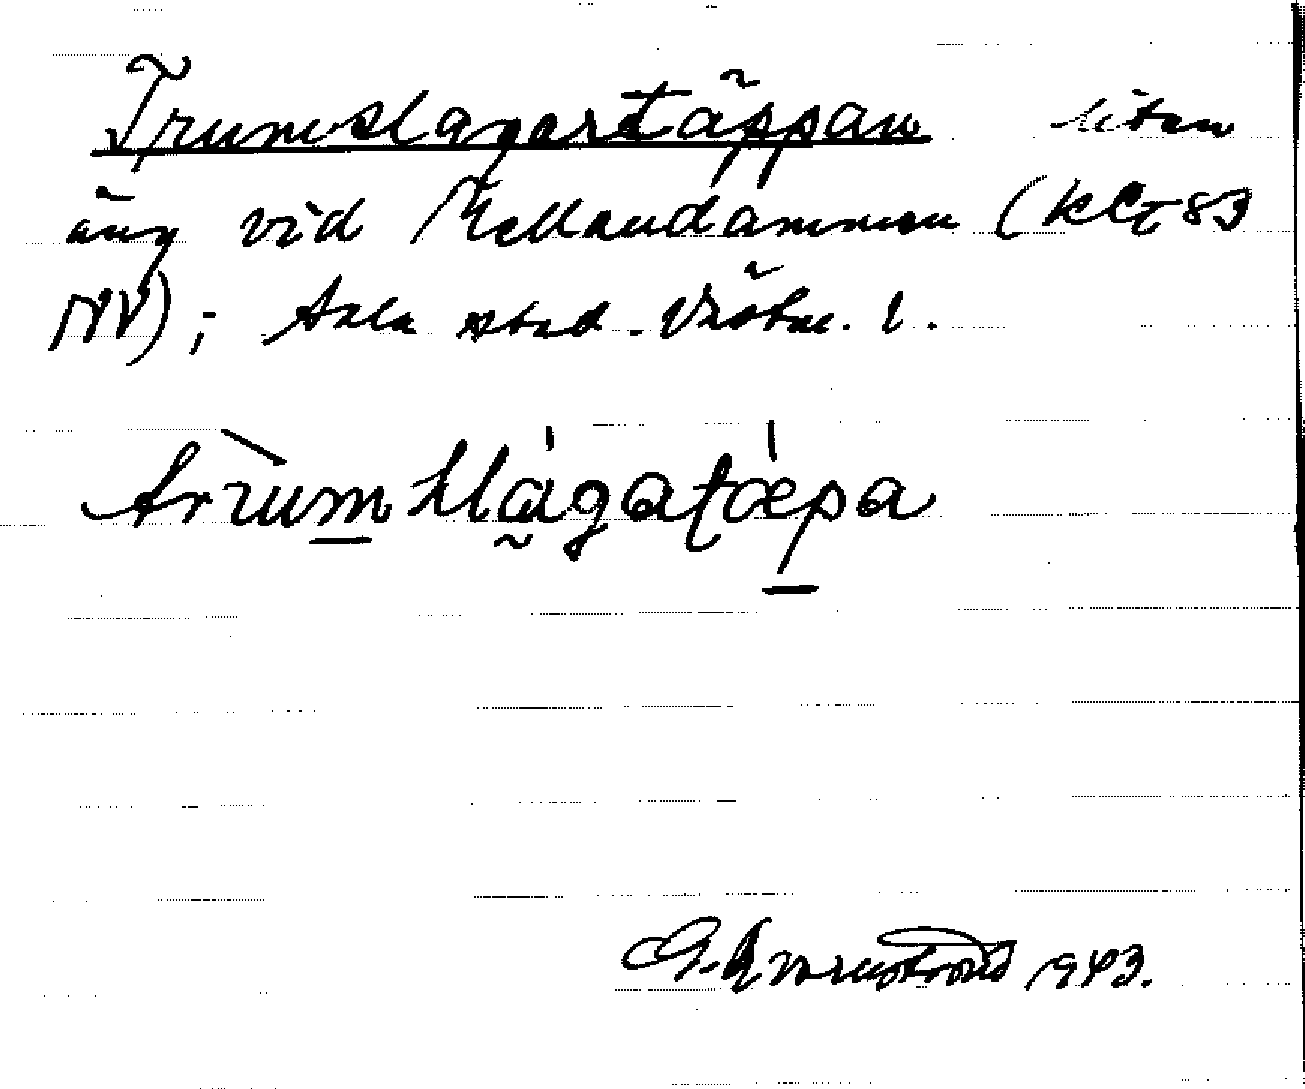 Trumslagartäppan liten
äng vid Mellandammen (kct 83
NV); Sala stad. Västm. l.
trumslagatæpa
G. Kvarnström 1943.